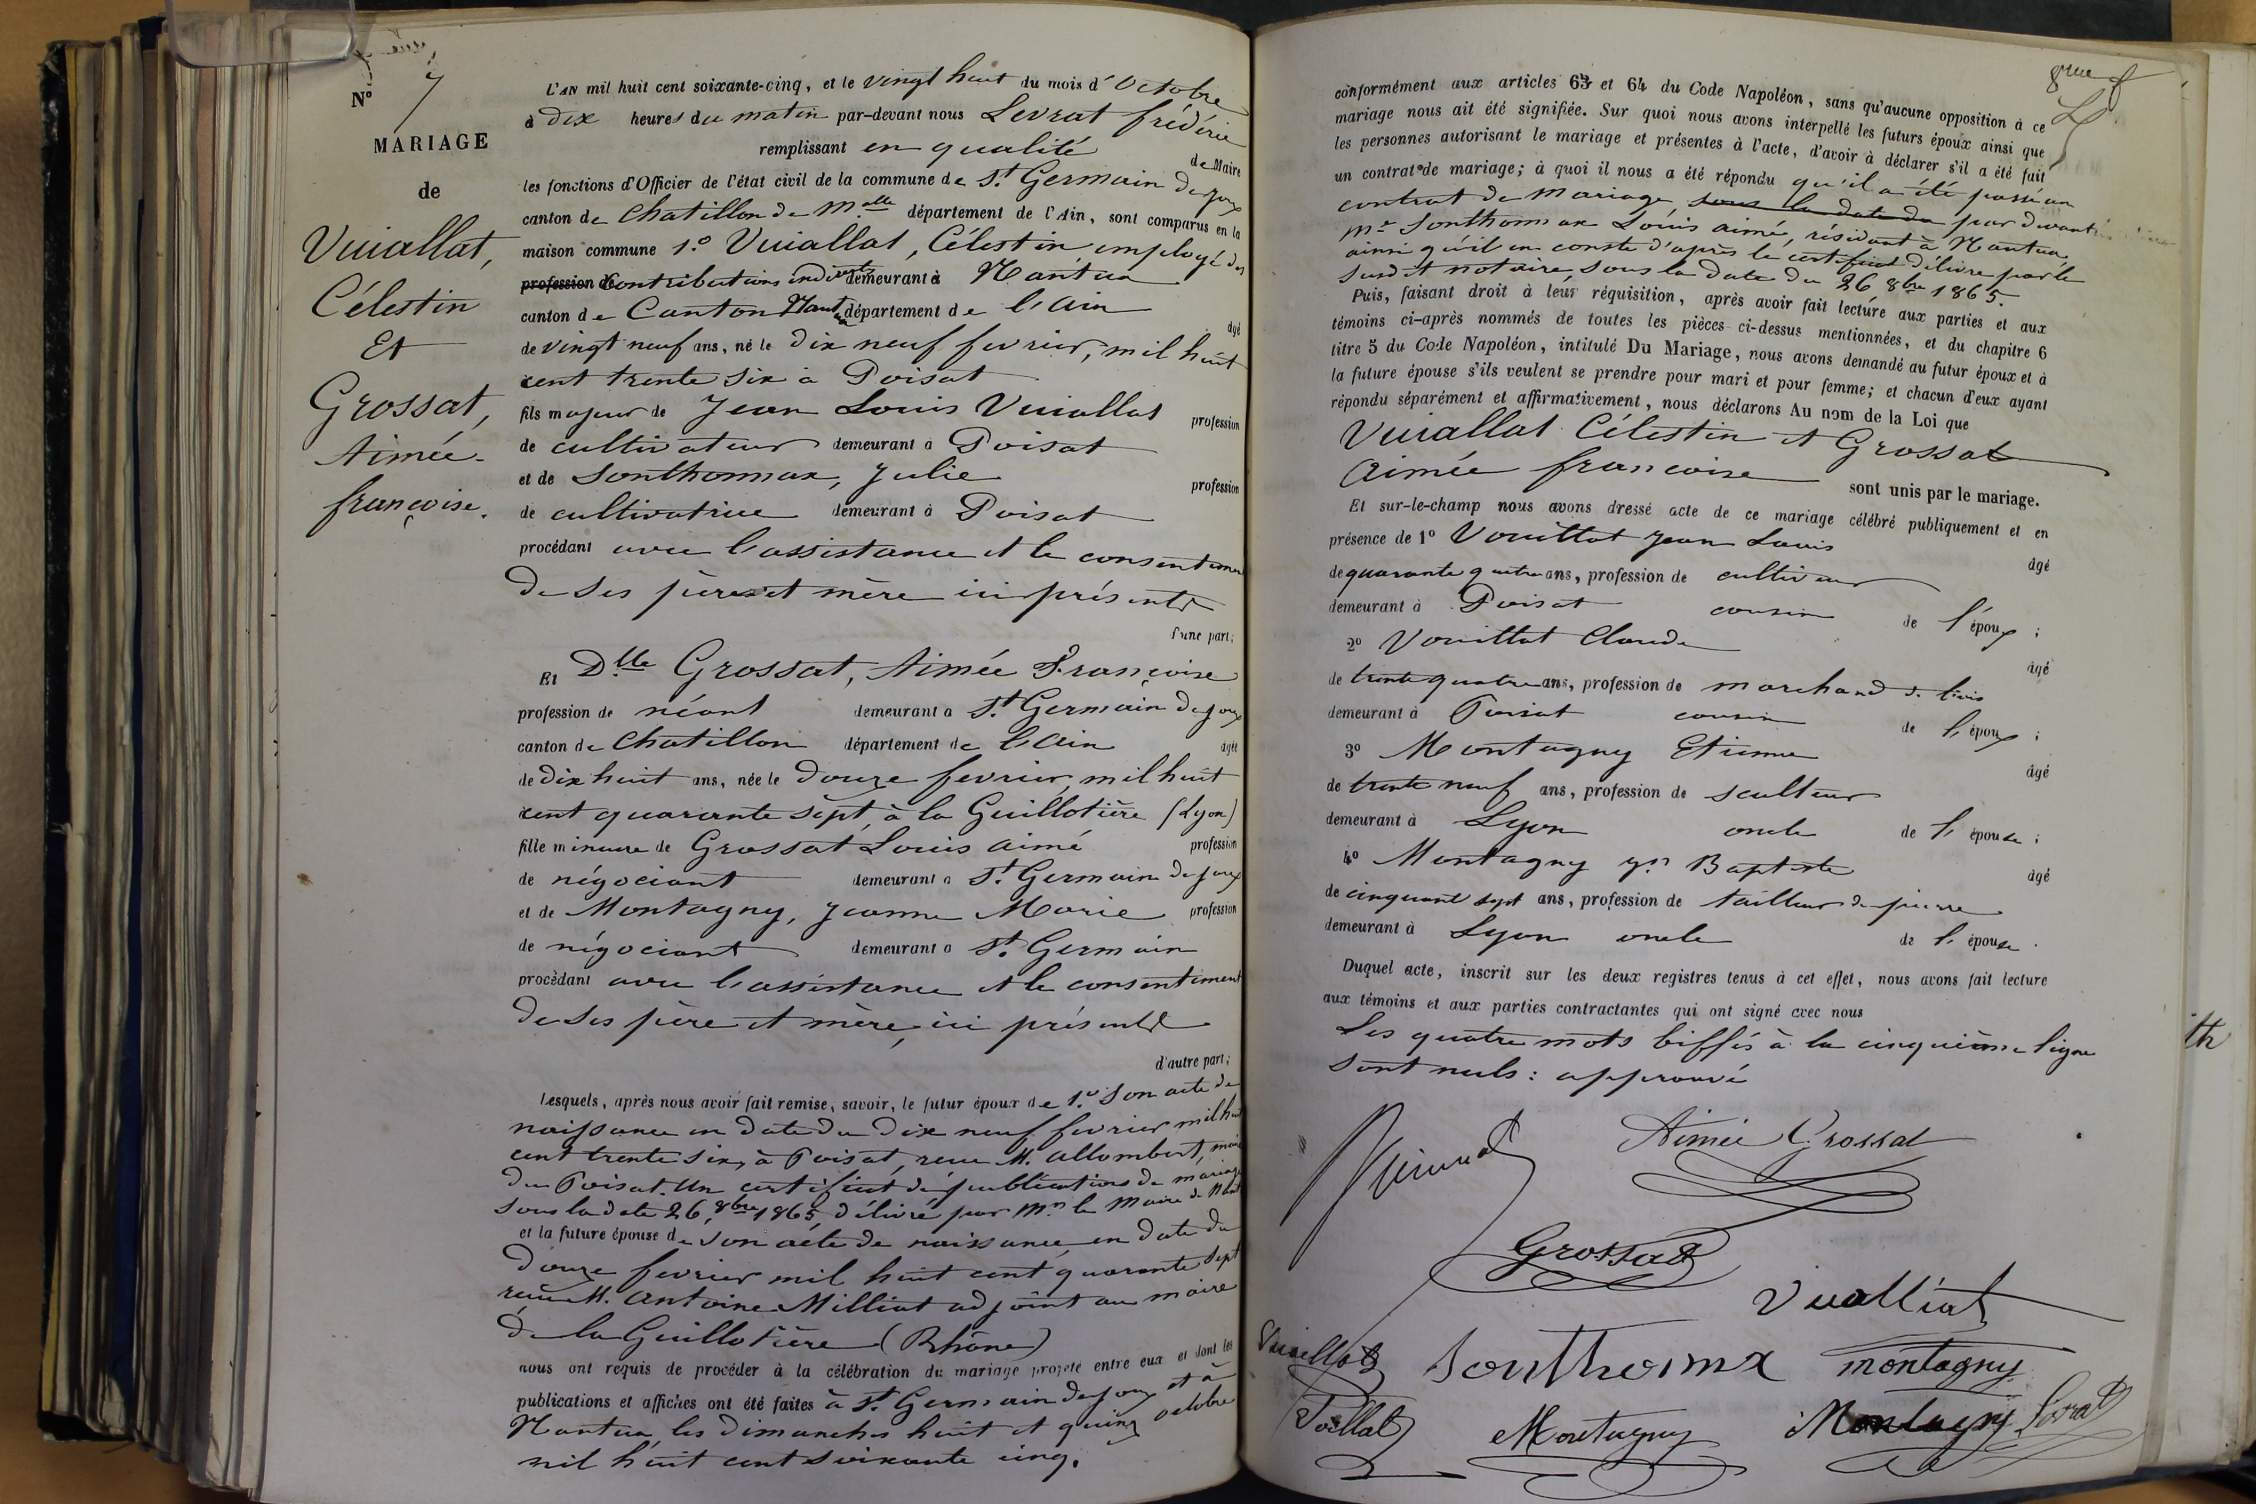 N° 7
MARIAGE
de
Vuiallat,
Célestin
Et
Grossat,
Aimée-
françoise.
L'AN mil huit cent soixante-cinq, et le vingt huit du mois d'Octobre
à dix heures du matin par-devant nous Levrat frédéric
remplissant en qualité de Maire
les fonctions d'Officier de l'état civil de la commune de St Germain de Joux
canton de Chatillon de Malle département de l'Ain, sont comparus en la
maison commune 1.° Vuiallat, Célestin employé des
profession de Contributions indirectes demeurant à Nantua
canton de Canton Nantua département de l'Ain âgé
de vingt neuf ans, né le dix neuf fevrier, mil huit
cent trente six à Poisat
fils majeur de Jean Louis Vuiallat profession
de cultivateur demeurant à Poisat
et de Sonthonnax, Julie profession
de cultivatrice demeurant à Poisat
procédant avec l'assistance et le consentement
de ses père et mère ici présents
d'une part;
Et Dlle Grossat, Aimée Françoise
profession de néant demeurant à St Germain de Joux
canton de Chatillon département de l'Ain âgée
de dix huit ans, née le douze fevrier, mil huit
cent quarante sept, à la Guillotière (Lyon)
fille mineure de Grossat Louis Aimé profession
de négociant demeurant à St Germain de Joux
et de Montagny, Jeanne Marie profession
de négociant demeurant à St Germain
procédant avec l'assistance et le consentiment
de ses père et mère, ici présents
d'autre part;
Lesquels, après nous avoir fait remise, savoir, le futur époux de 1.° Son acte de
naissance en date du dix neuf fevrier mil huit
cent trente six, à Poisat, reçu M. Allombert, maire
du Poisat. Un certificat de publications de mariage
sous la date 26, 8bre 1865, délivré par Mr le Maire de Nant
et la future épouse de son acte de naissance en date du
douze fevrier mil huit cent quarante sept
reçu M. Antoine Milliat adjoint au maire
de la Guillotière (Rhône)
nous ont requis de procéder à la célébration du mariage projeté entre eux et dont les
publications et affiches ont été faites à St Germain de Joux et à
Nantua, les dimanches huit et quinze octobre
mil huit cent soixante cinq.
conformément aux articles 63 et 64 du Code Napoléon, sans qu'aucune opposition à ce
mariage nous ait été signifiée. Sur quoi nous avons interpellé les futurs époux ainsi que
les personnes autorisant le mariage et présentes à l'acte, d'avoir à déclarer s'il a été fait
un contrat de mariage; à quoi il nous a été répondu qu'il a été passé un
contrat de mariage sous la date du par devant
Mr Sonthonnax Louis aimé, résidant à Nantua,
ainsi qu'il en conste d'après le certificat délivré par le
susdit notaire, sous la date du 26 8bre 1865.
Puis, faisant droit à leur réquisition, après avoir fait lecture aux parties et aux
témoins ci-après nommés de toutes les pièces ci-dessus mentionnées, et du chapitre 6
titre 5 du Code Napoléon, intitulé Du Mariage, nous avons demandé au futur époux et à
la future épouse s'ils veulent se prendre pour mari et pour femme; et chacun d'eux ayant
répondu séparément et affirmativement, nous déclarons Au nom de la Loi que
Vuiallat Célestin et Grossat
Aimée françoise sont unis par le mariage.
Et sur-le-champ nous avons dressé acte de ce mariage célébré publiquement et en
présence de 1° Vouillat Jean Louis âgé
de quarante quatre ans, profession de cultiveur
demeurant à Poisat cousin de l'époux;
2° Vouillat Claude âgé
de trente quatre ans, profession de marchand de bois
demeurant à Poisat cousin de l'époux;
3° Montagny Etienne âgé
de trente neuf ans, profession de sculteur
demeurant à Lyon oncle de l'épouse;
4° Montagny Jn Baptiste âgé
de cinquant sept ans, profession de tailleur de pierre
demeurant à Lyon oncle de l'épouse.
Duquel acte, inscrit sur les deux registres tenus à cet effet, nous avons fait lecture
aux témoins et aux parties contractantes qui ont signé avec nous
Les quatre mots biffés à la cinquième ligne
sont nuls: approuvé
Aimée Grossat
Grossat
Vualliat
Sonthonnx
montagny
Montagny
Montagny
Levrat